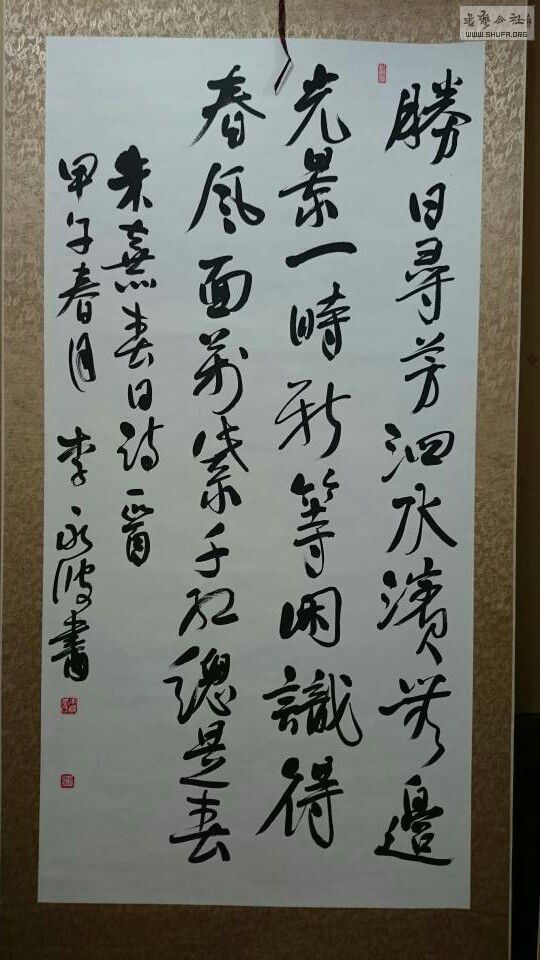 勝日尋芳泗水濱無邊
光景一時新等閑識得
春風面萬紫千紅總是春
朱熹春日詩一首
甲午春月 李永波書
WWW.SHUFA.ORG